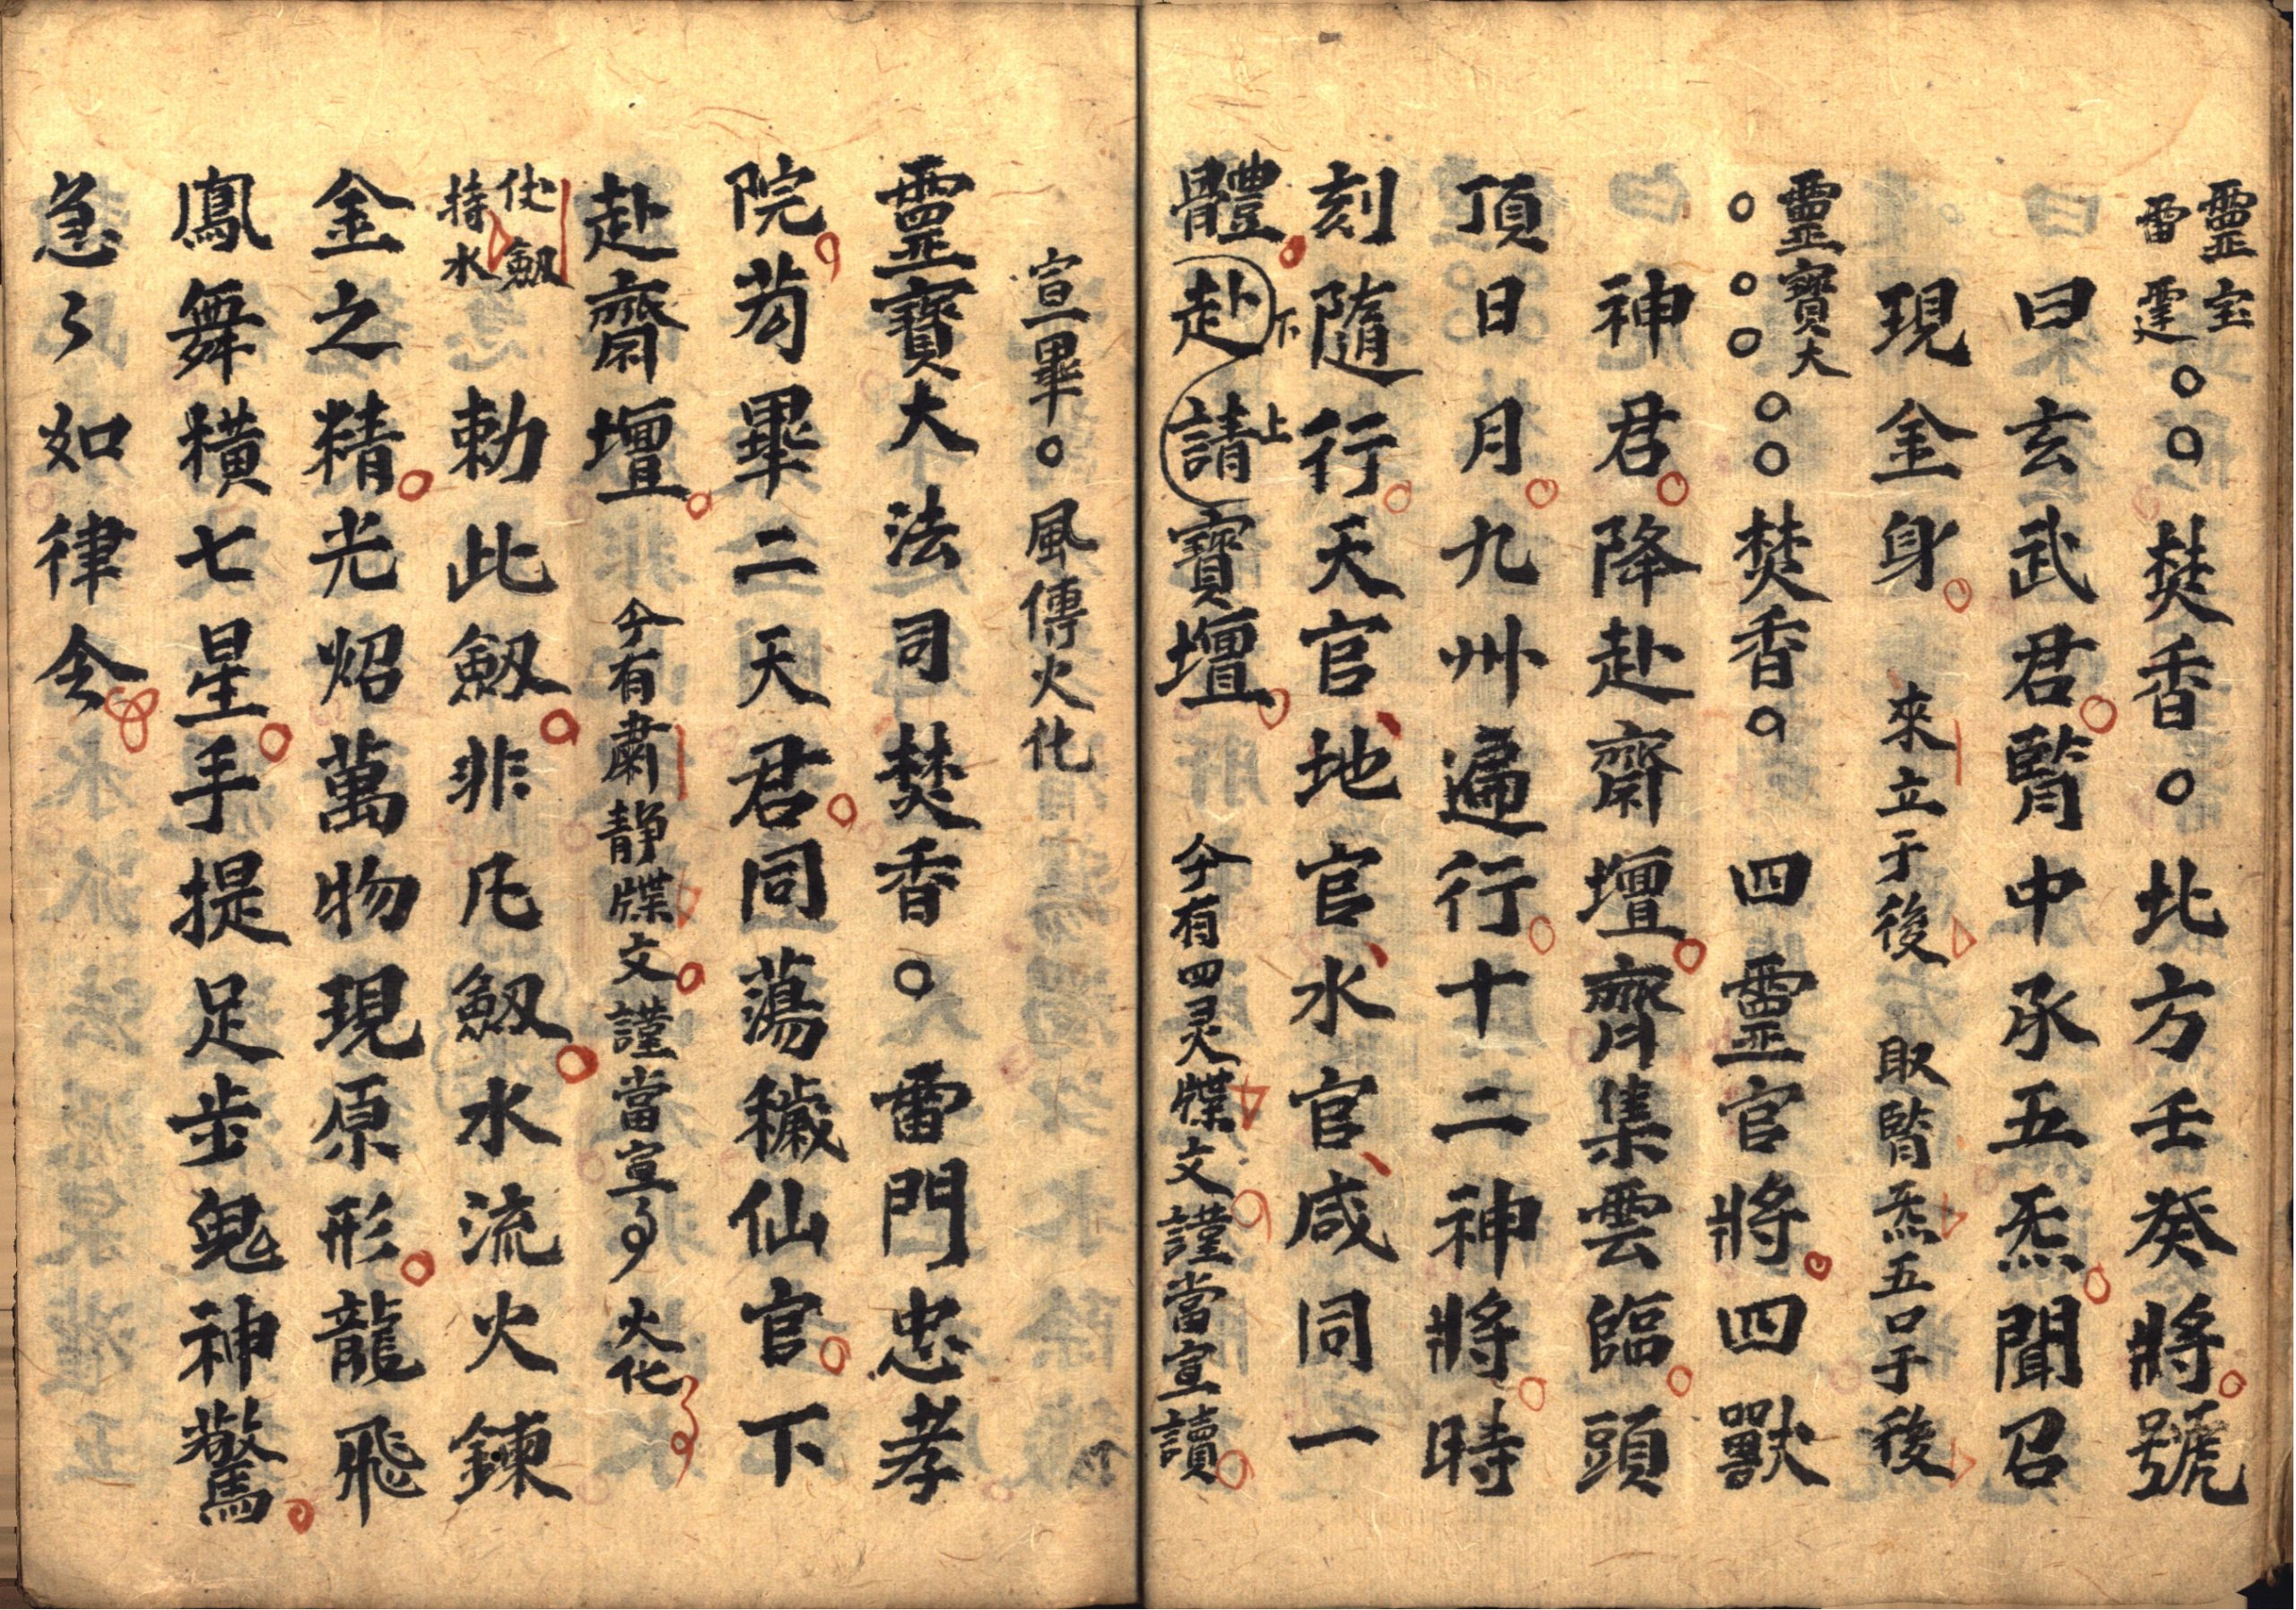 靈宝雷霆○○焚香○北方壬癸將號
曰玄武君腎中承五炁聞召
現金身 來立于後 取腎炁五口于後
靈寶大○○○○○焚香○ 四靈官將四獸
神君降赴齋壇齊集雲臨頭
頂日月九州遍行十二神將時
刻隨行天官地官水官咸同一
體赴下請上寶壇 今有四灵牒文謹當宣讀
宣畢○風傳火化
靈寶大法司焚香○雷門忠孝
院苟畢二天君同蕩穢仙官下
赴齋壇 今有肅静牒文謹當宣 火化
仗劔持水 勅此劔非凡劔水流火鍊
金之精光炤萬物現原形龍飛
鳳舞橫七星手提足步鬼神驚
急〻如律令